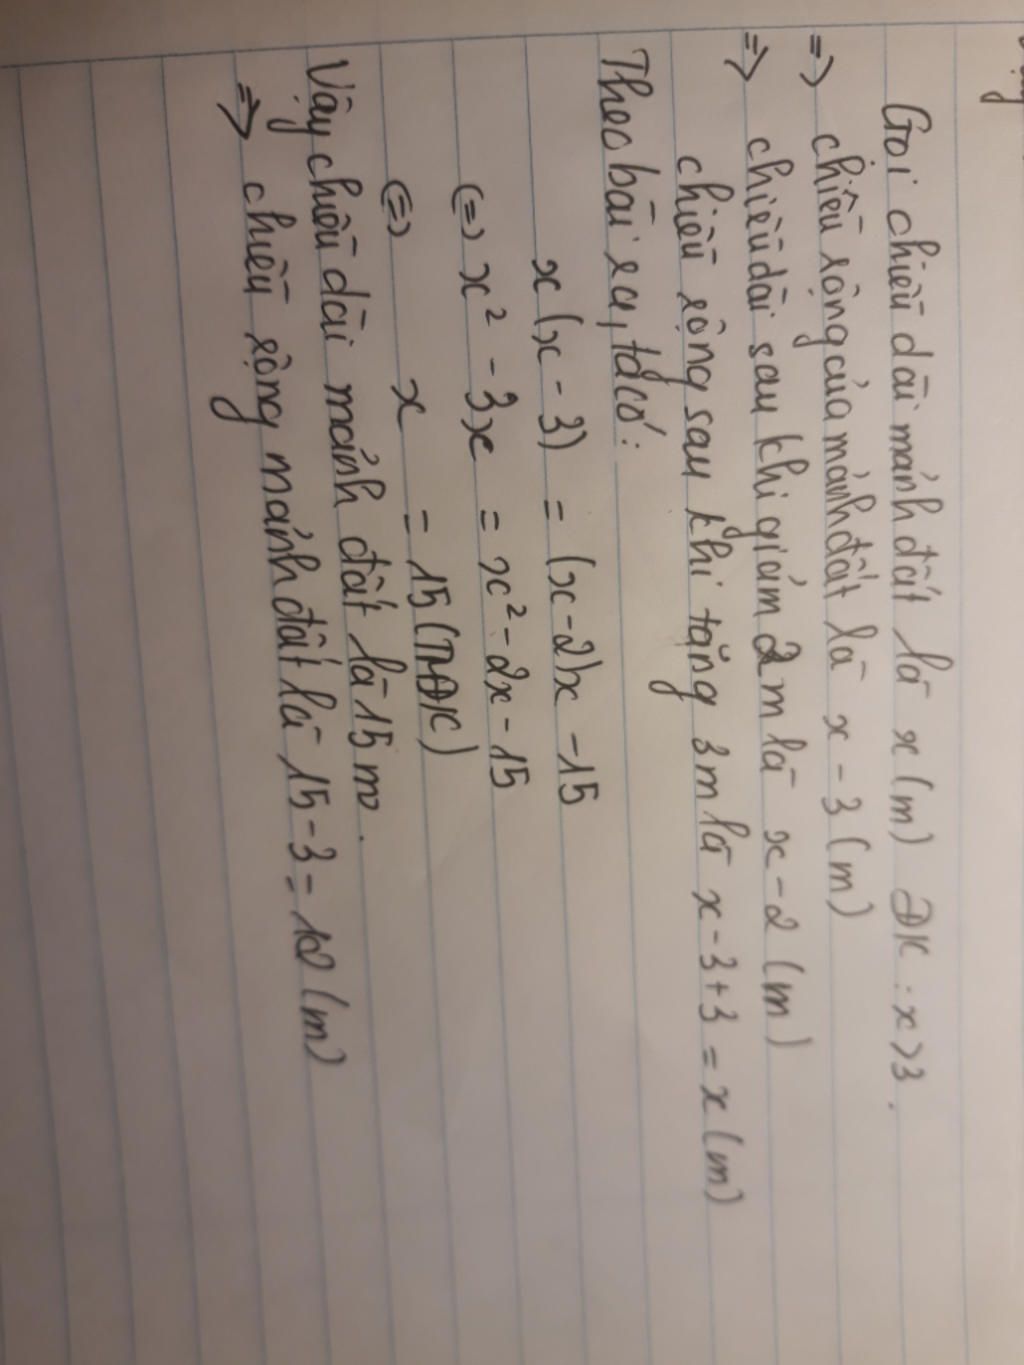 Gọi chiều dài mảnh đất là x (m) ĐK : x > 3.
=> chiều rộng của mảnh đất là x - 3 (m)
=> chiều dài sau khi giảm 2m là x - 2 (m)
chiều rộng sau khi tăng 3m là x - 3 + 3 = x (m)
Theo bài ra, ta có:
x (x - 3) = (x - 2)x - 15
(=) x² - 3x = x² - 2x - 15
(=) x = 15 (TMĐK)
Vậy chiều dài mảnh đất là 15 m.
=> chiều rộng mảnh đất là 15 - 3 = 12 (m)